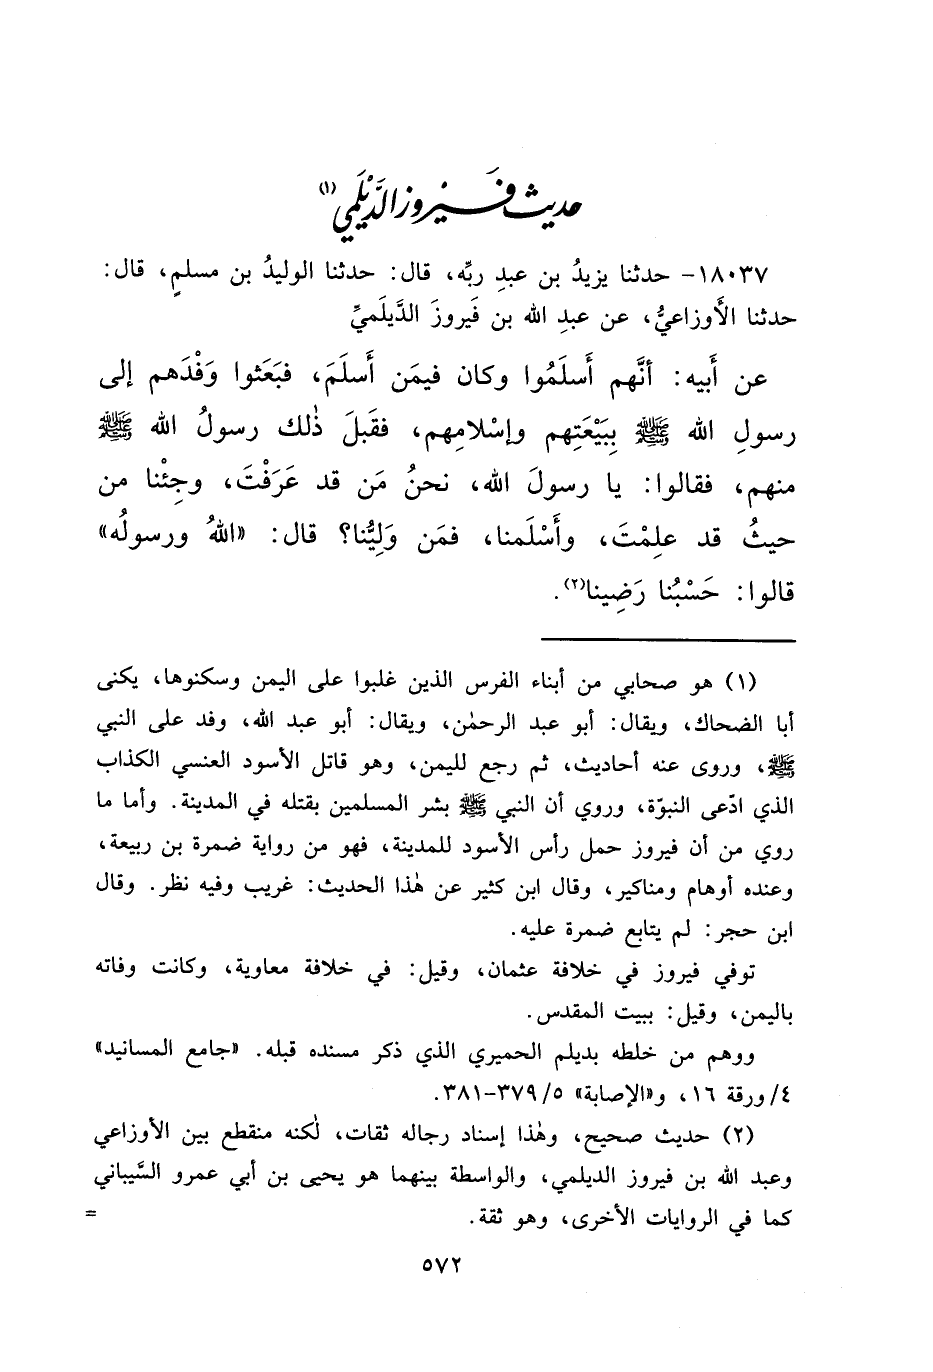 حديث فَيْرُوز الدَّيْلَمِي (١)
١٨٠٣٧- حدثنا يزيدُ بن عبدِ ربِّه، قال: حدثنا الوليدُ بن مسلمٍ، قال:
حدثنا الأَوزاعيُّ، عن عبدِ الله بن فَيروزَ الدَّيلَميِّ
عن أَبيه: أنَّهم أَسلَمُوا وكان فيمَن أَسلَمَ، فبَعَثوا وَفْدَهم إلى
رسولِ الله ﷺ بِبَيْعَتِهم وإسْلامِهم، فقَبلَ ذٰلك رسولُ الله ﷺ
منهم، فقالوا: يا رسولَ الله، نحنُ مَن قد عَرَفْتَ، وجِئْنا من
حيثُ قد علِمْتَ، وأَسْلَمنا، فمَن وَلِيُّنا؟ قال: «اللهُ ورسولُه»
قالوا: حَسْبُنا رَضِينا(٢).
(١) هو صحابي من أبناء الفرس الذين غلبوا على اليمن وسكنوها، يكنى
أبا الضحاك، ويقال: أبو عبد الرحمٰن، ويقال: أبو عبد الله، وفد على النبي
ﷺ، وروى عنه أحاديث، ثم رجع لليمن، وهو قاتل الأسود العنسي الكذاب
الذي ادّعى النبوّة، وروي أن النبي ﷺ بشر المسلمين بقتله في المدينة. وأما ما
روي من أن فيروز حمل رأس الأسود للمدينة، فهو من رواية ضمرة بن ربيعة،
وعنده أوهام ومناكير، وقال ابن كثير عن هٰذا الحديث: غريب وفيه نظر. وقال
ابن حجر: لم يتابع ضمرة عليه.
توفي فيروز في خلافة عثمان، وقيل: في خلافة معاوية، وكانت وفاته
باليمن، وقيل: ببيت المقدس.
ووهم من خلطه بديلم الحميري الذي ذكر مسنده قبله. «جامع المسانيد»
٤/ورقة ١٦، و«الإصابة» ٥/ ٣٧٩-٣٨١.
(٢) حديث صحيح، وهٰذا إسناد رجاله ثقات، لٰكنه منقطع بين الأوزاعي
وعبد الله بن فيروز الديلمي، والواسطة بينهما هو يحيى بن أبي عمرو السَّيباني
كما في الروايات الأخرى، وهو ثقة. =
٥٧٢